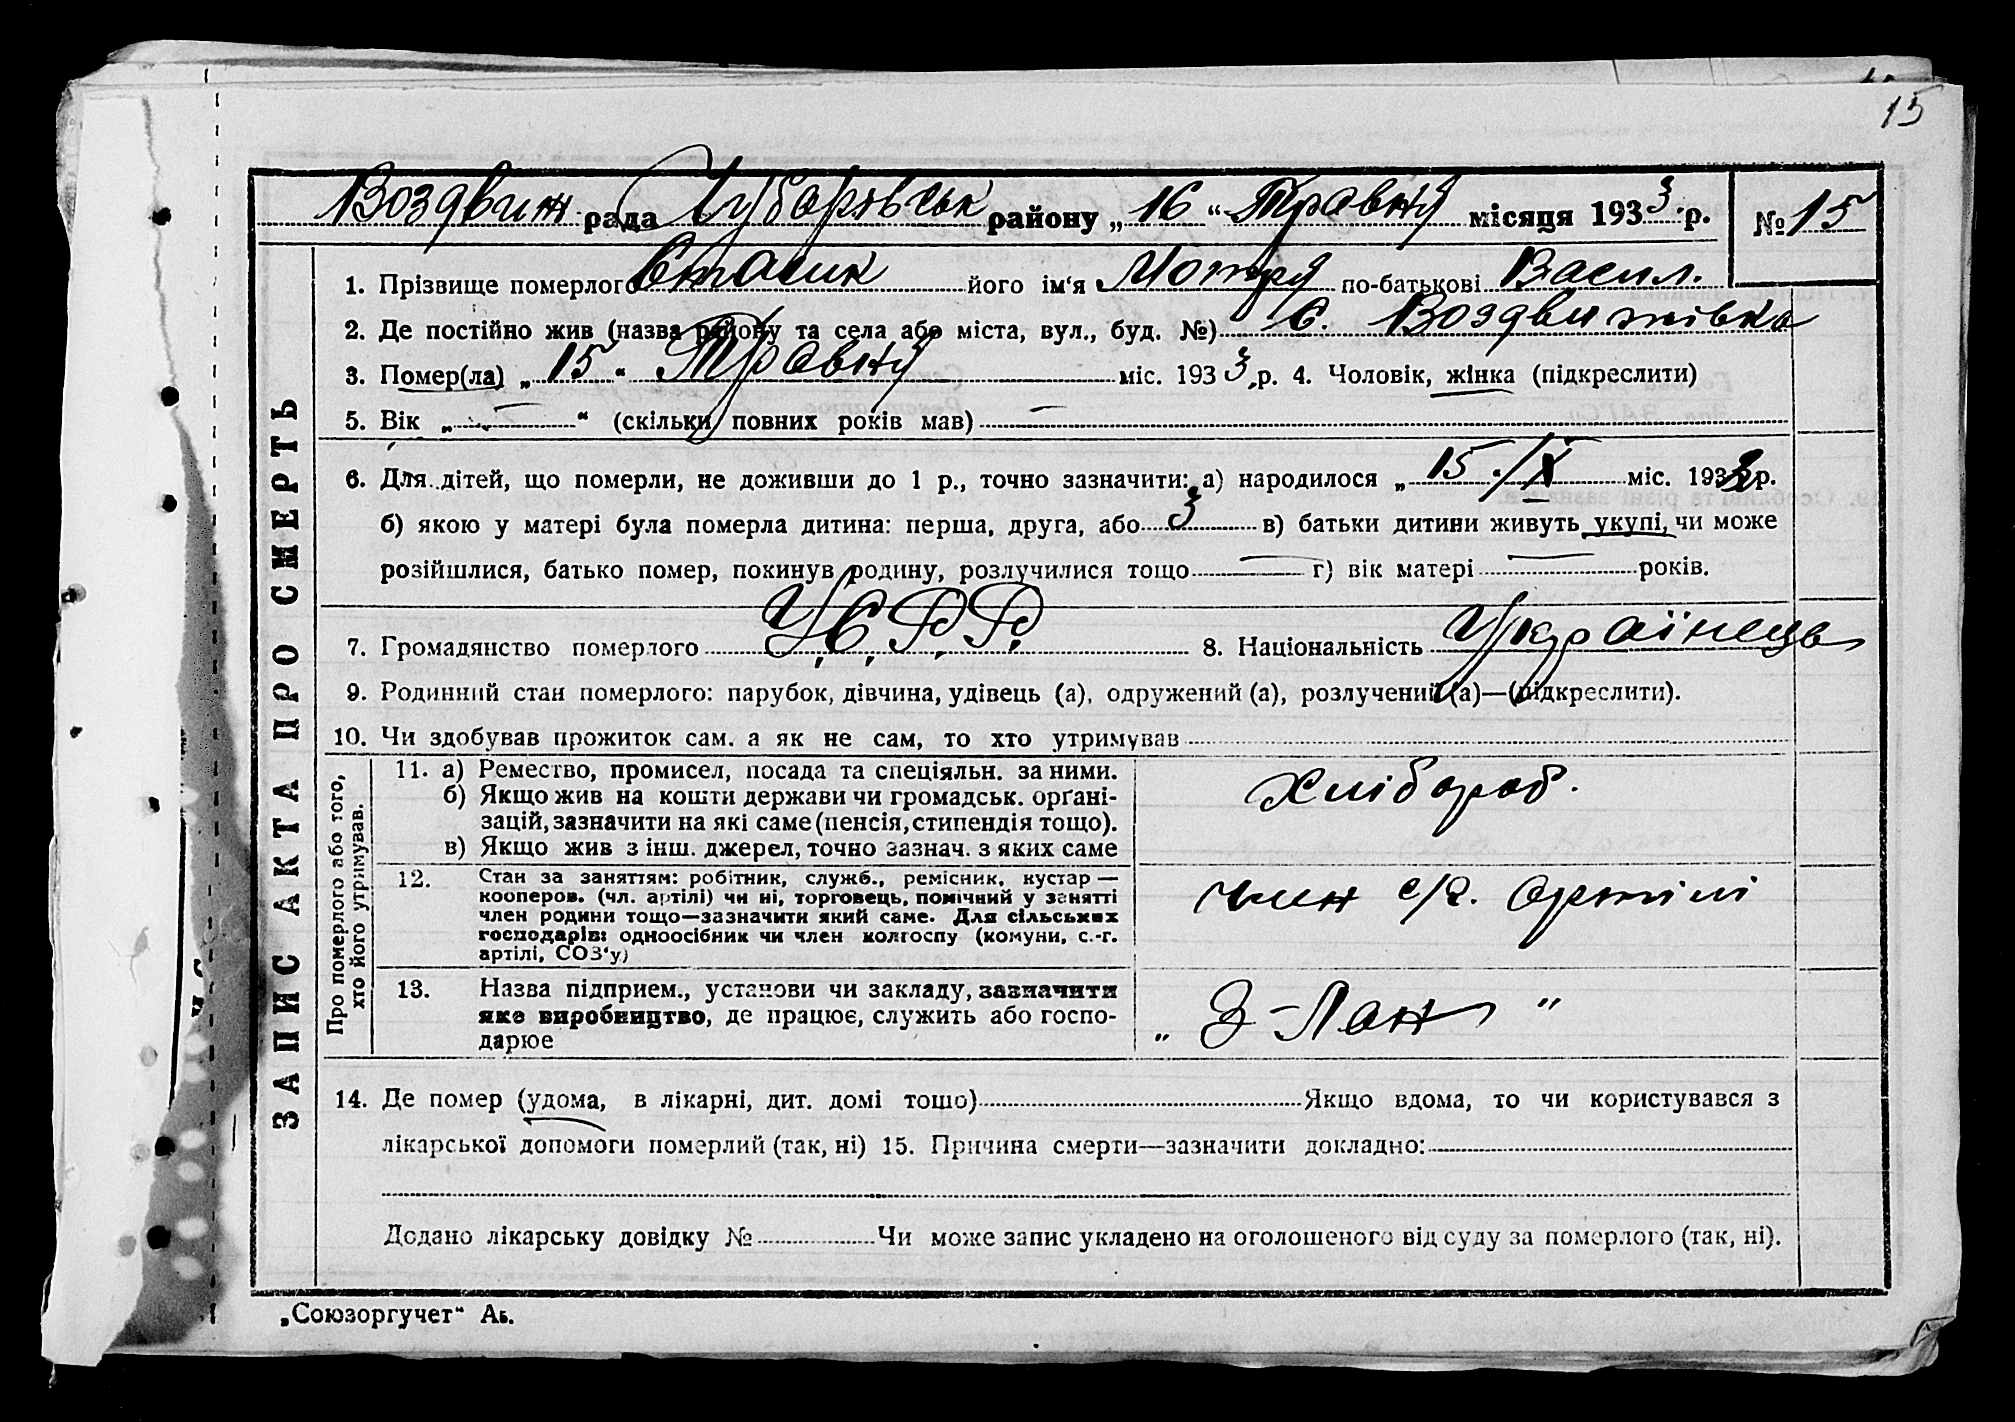 15
Воздвиж рада Чубарівськ району „16“ Травня місяця 1933 р. № 15
ЗАПИС АКТА ПРО СМЕРТЬ
1. Прізвище померлого Стасик його ім‘я Мотря по-батькові Васил.
2. Де постійно жив (назва району та села або міста, вул., буд. №) С. Воздвижівка
3. Помер(ла) „15“ Травня міс. 1933 р. 4. Чоловік, жінка (підкреслити)
5. Вік „—“ (скільки повних років мав) —
6. Для дітей, що померли, не доживши до 1 р., точно зазначити: а) народилося „15./IX міс. 1932 р.
б) якою у матері була померла дитина: перша, друга, або 3 в) батьки дитини живуть укупі, чи може
розійшлися, батько помер, покинув родину, розлучилися тощо — г) вік матері — років.
7. Громадянство померлого У.С.Р.Р. 8. Національність Українець
9. Родинний стан померлого: парубок, дівчина, удівець (а), одружений (а), розлучений (а)—(підкреслити).
10. Чи здобував прожиток сам, а як не сам, то хто утримував
Про померлого або того,
хто його утримував.
11. а) Ремество, промисел, посада та спеціяльн. за ними.
б) Якщо жив на кошти держави чи громадськ. орґані-
зацій, зазначити на які саме (пенсія, стипендія тощо).
в) Якщо жив з інш. джерел, точно зазнач. з яких саме
Хлібороб.
12. Стан за заняттям: робітник, служб., ремісник, кустар —
кооперов. (чл. артілі) чи ні, торговець, помічний у занятті
член родини тощо—зазначити який саме. Для сільських
господарів: одноосібник чи член колгоспу (комуни, с.-г.
артілі, СОЗ‘у)
член с/г. артілі
13. Назва підприєм., установи чи закладу, зазначити
яке виробництво, де працює, служить або госпо-
дарює
„З-Лан“
14. Де помер (удома, в лікарні, дит. домі тощо) Якщо вдома, то чи користувався з
лікарської допомоги померлий (так, ні) 15. Причина смерти—зазначити докладно:
Додано лікарську довідку № Чи може запис укладено на оголошеного від суду за померлого (так, ні).
„Союзоргучет“